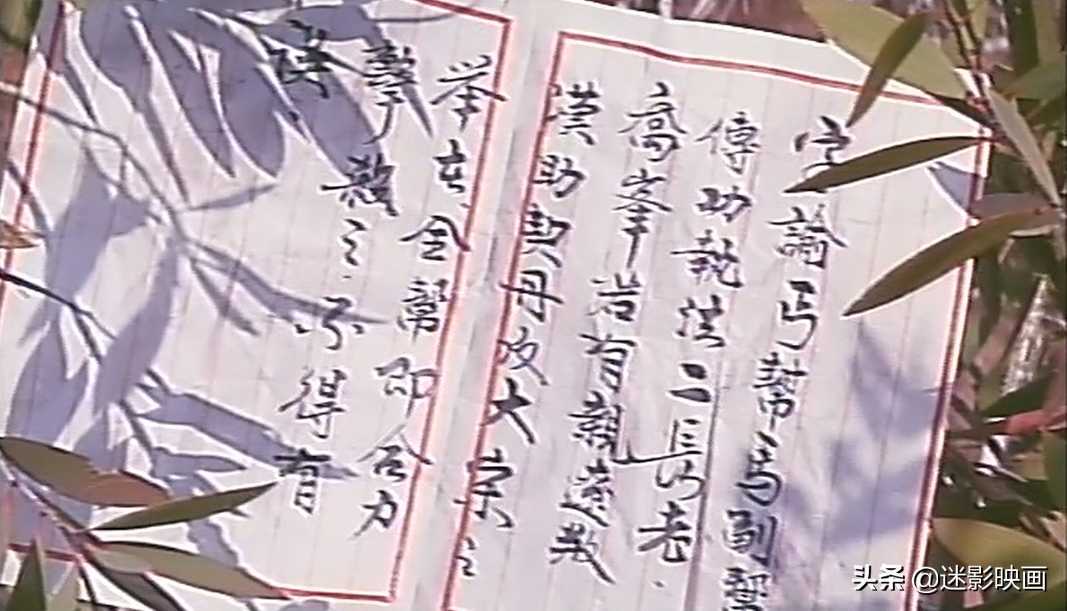 字諭丐幫馬副幫
傳功執法二長老
喬峯若有親遼叛
漢助契丹攻大宋之
举在全幫即合力
擊殺之不得有
誤
头条 @迷影映画